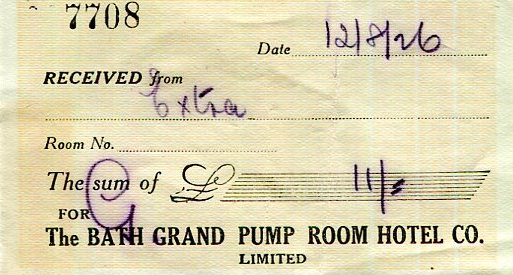 7708
Date 12/8/26
RECEIVED from
Extra
Room No.
The sum of £ 11/-
FOR
The BATH GRAND PUMP ROOM HOTEL CO.
LIMITED